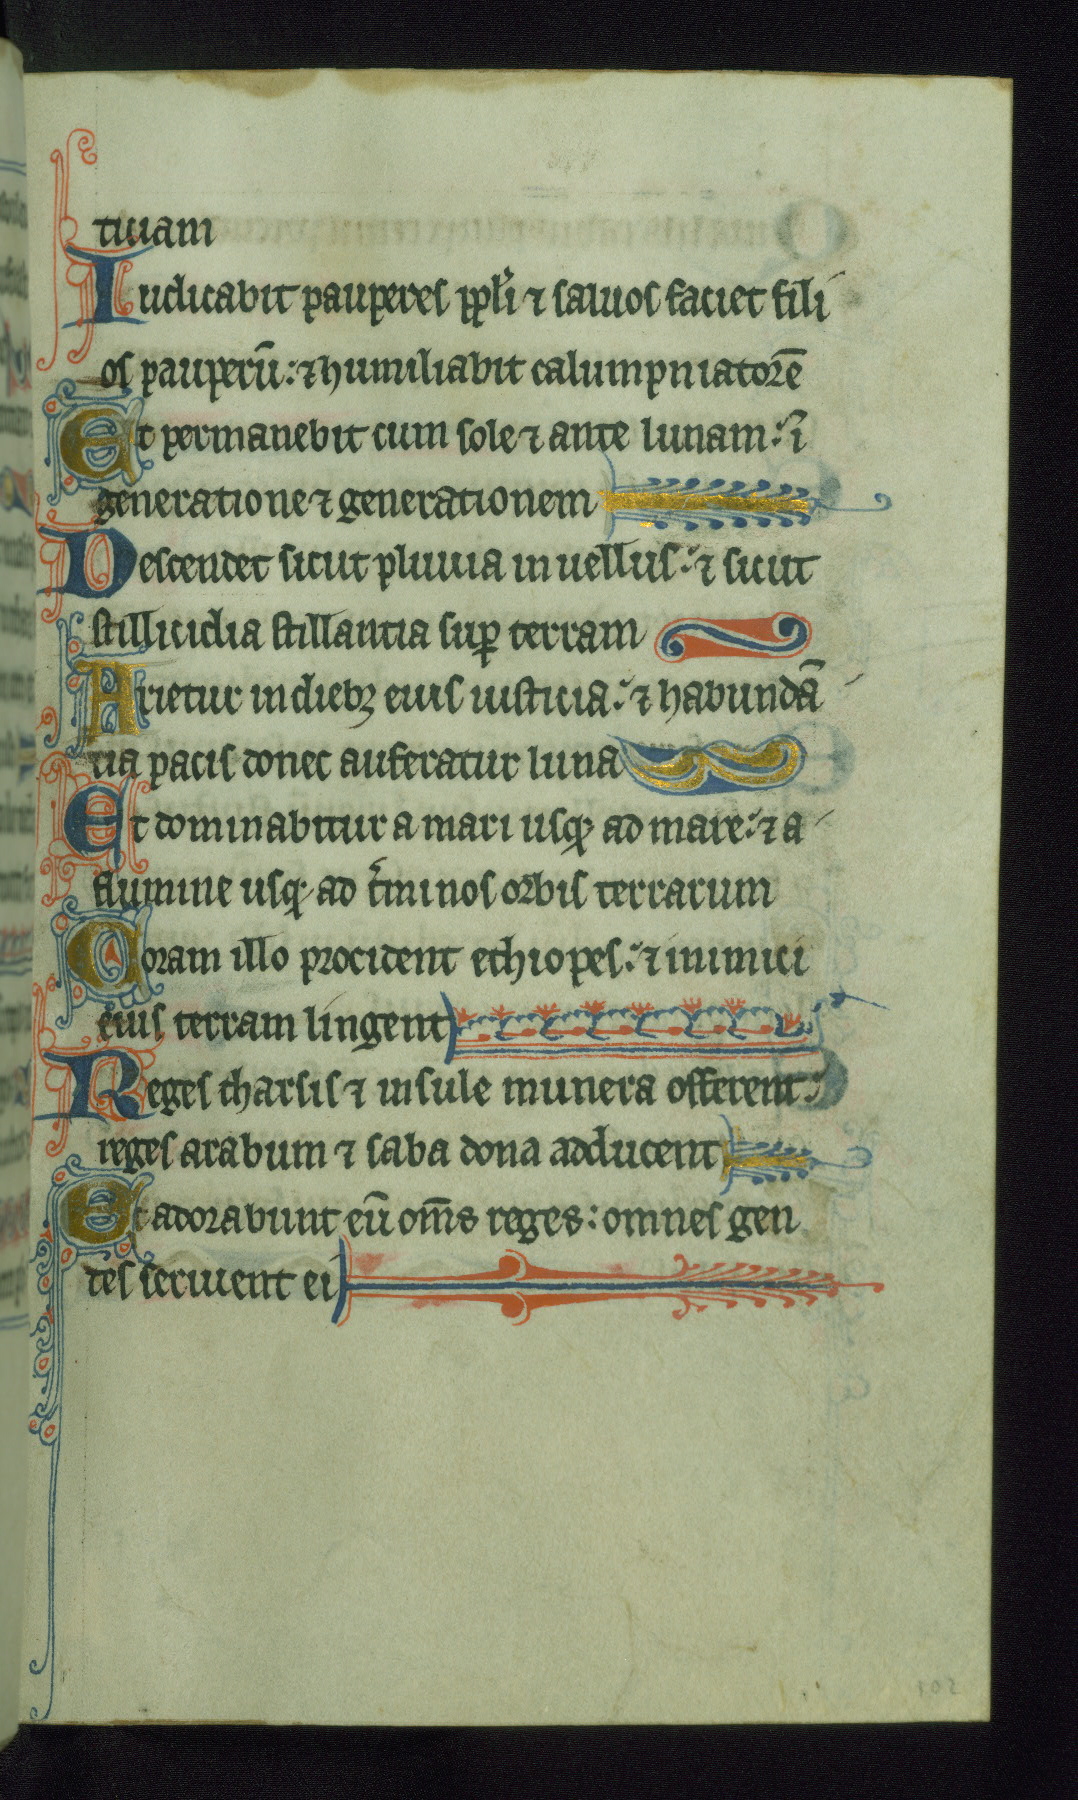 ticiam
Iudicabit pauperes ppl'i ⁊ saluos faciet fili
os pauperū: ⁊ humiliabit calumpniatorē
Et permanebit cum sole ⁊ ante lunam: ī
generatione ⁊ generationem
Descendet sicut pluuia in uellus: ⁊ sicut
stillicidia stillantia suꝑ terram
Arietur in diebꝫ eius iusticia: ⁊ habundā
tia pacis donec auferatur luna
Et dominabitur a mari usqꝫ ad mare: ⁊ a
flumine usqꝫ ad t'minos orbis terrarum
Coram illo procident ethiopes: ⁊ inimici
eius terram lingent
Reges tharsis ⁊ insule munera offerent:
reges arabum ⁊ saba dona adducent
Et adorabunt eū om̄s reges: omnes gen
tes seruient ei